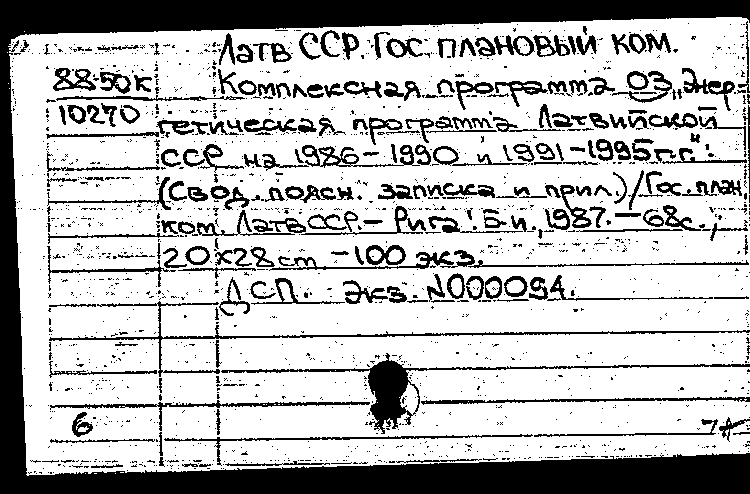 Латв ССР. Гос. плановый ком.
88-50к
10270
Комплексная программа 03 „Энер-
гетическая программа Латвийской
ССР на 1986-1990 и 1991-1995 гг.":
(Свод. поясн. записка и прил.) / Гос. план.
ком. Латв ССР. - Рига: Б.и., 1987. - 68с.;
20x28 cm. - 100 экз.
ДСП. Экз. N000094.
6